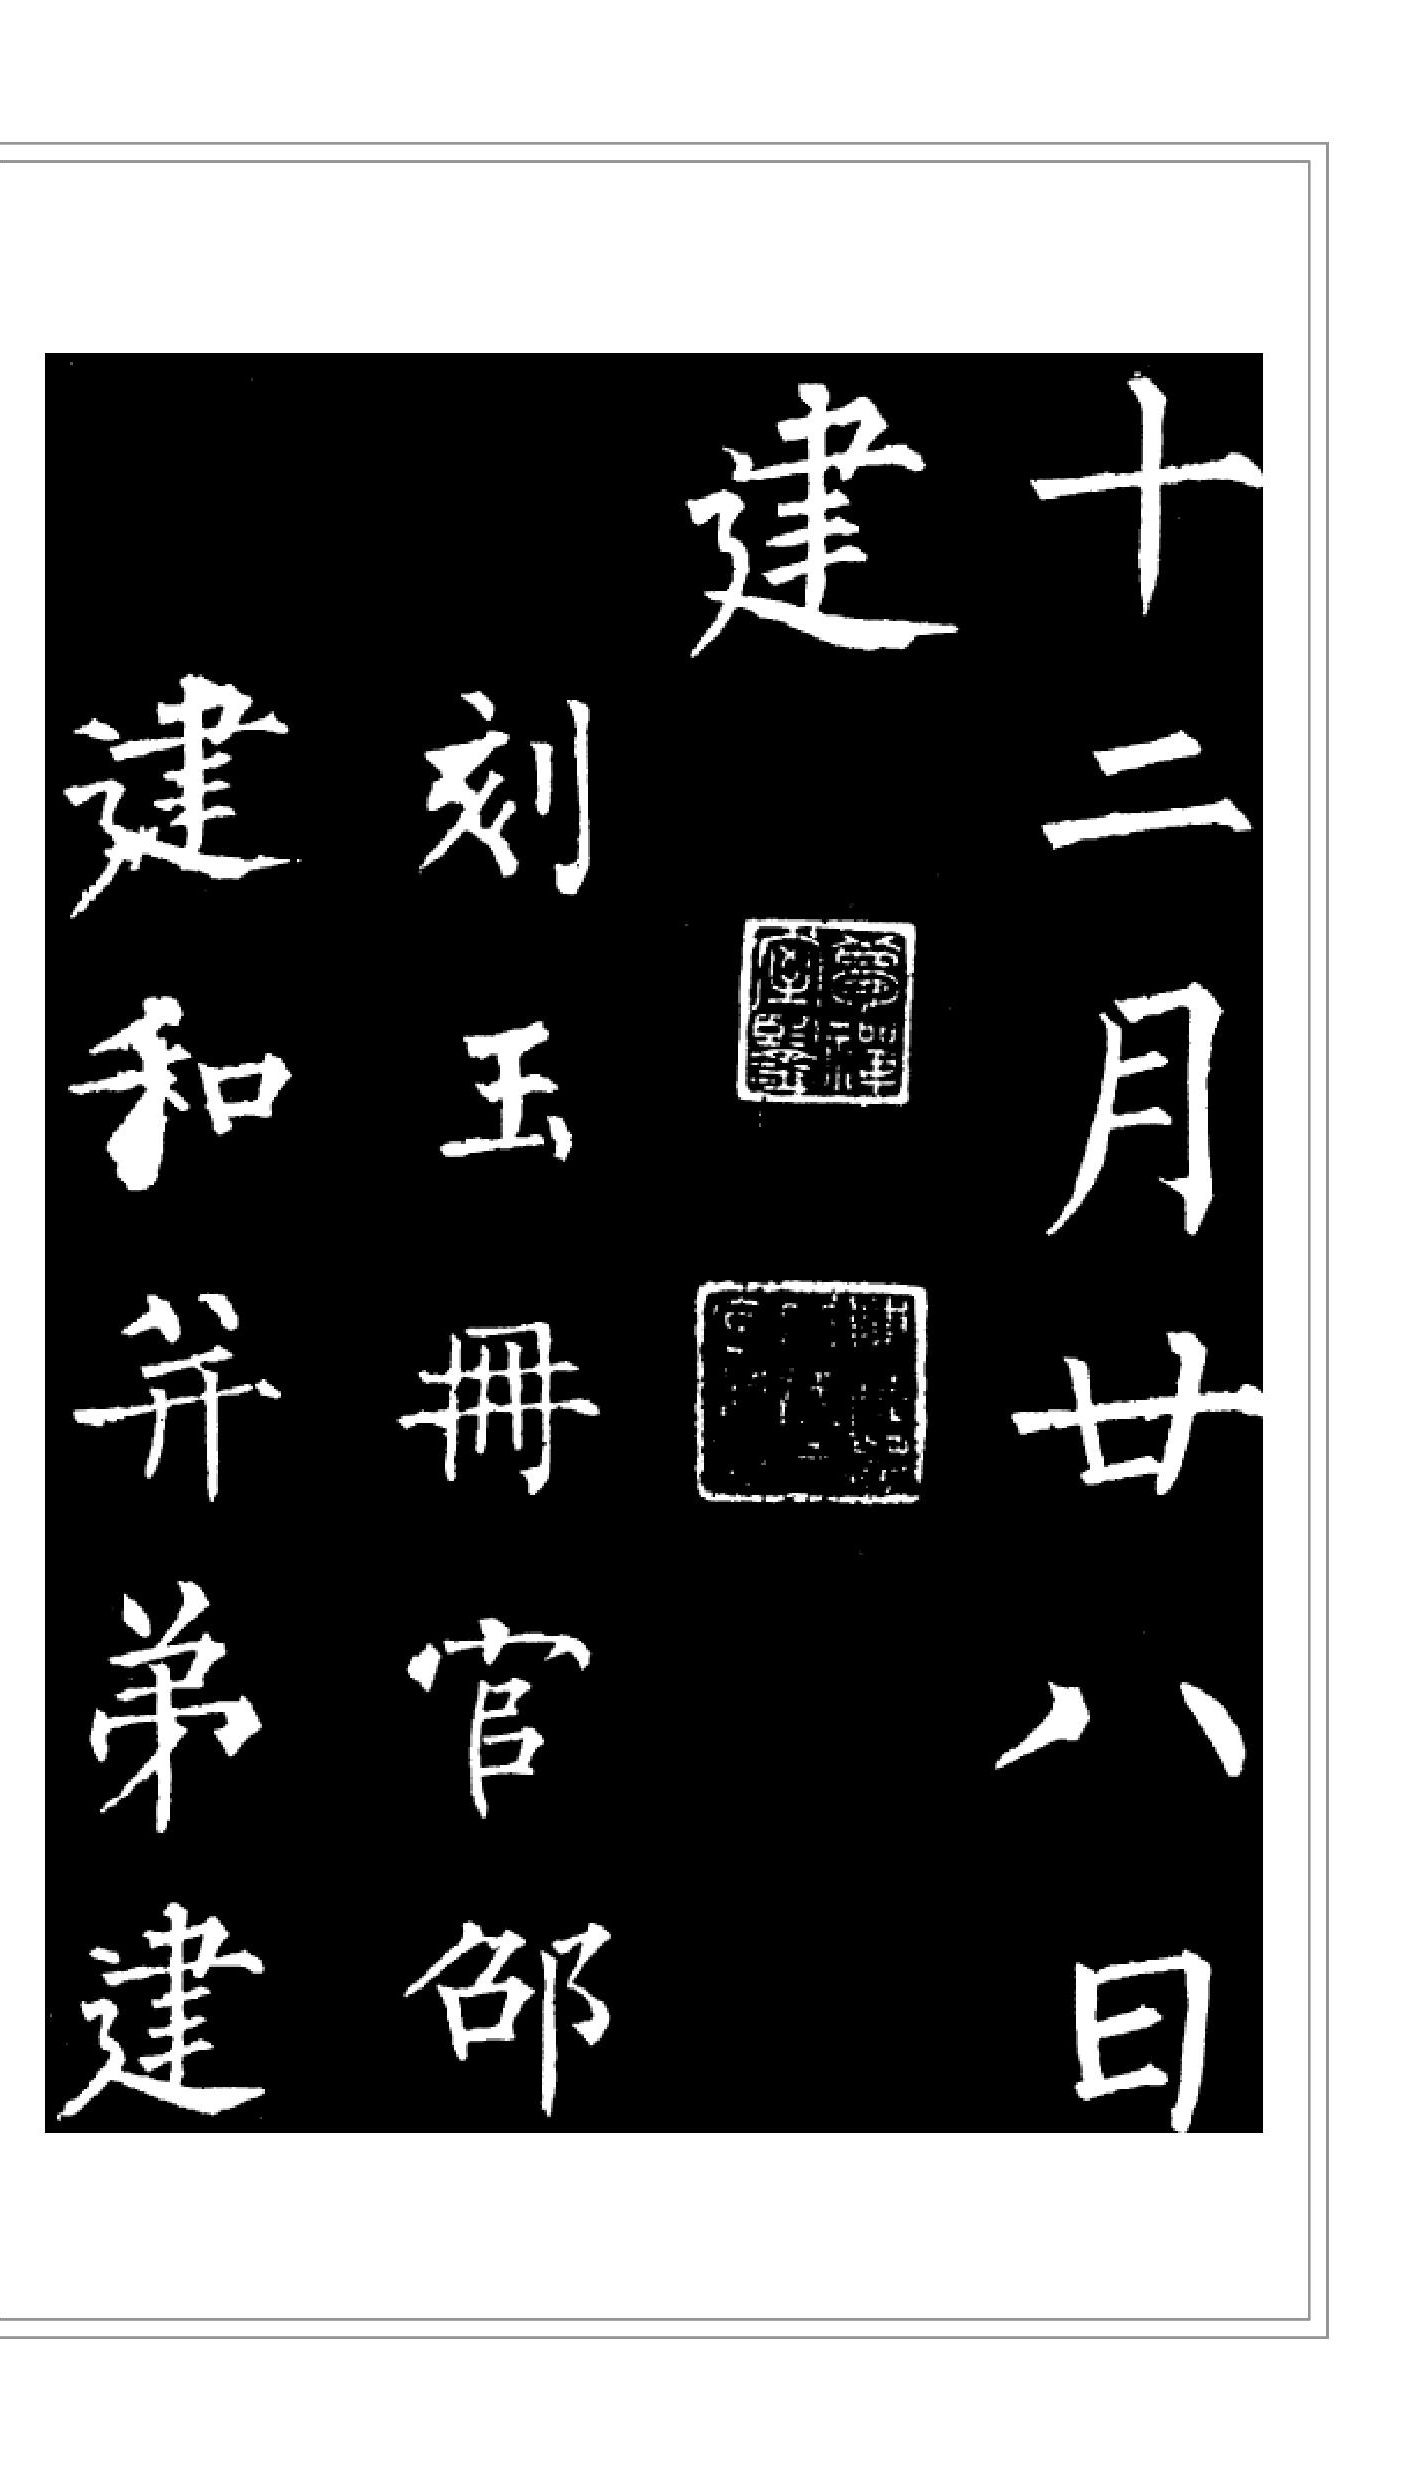 十二月廿八日
建
刻玉冊官邵
建和并弟建